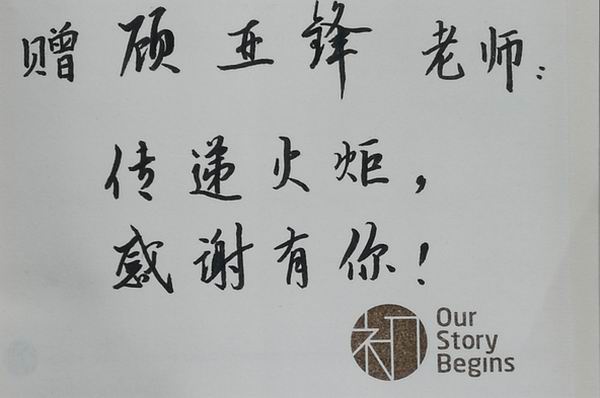 赠 顾亚锋 老师:
传递火炬,
感谢有你!
初
Our
Story
Begins